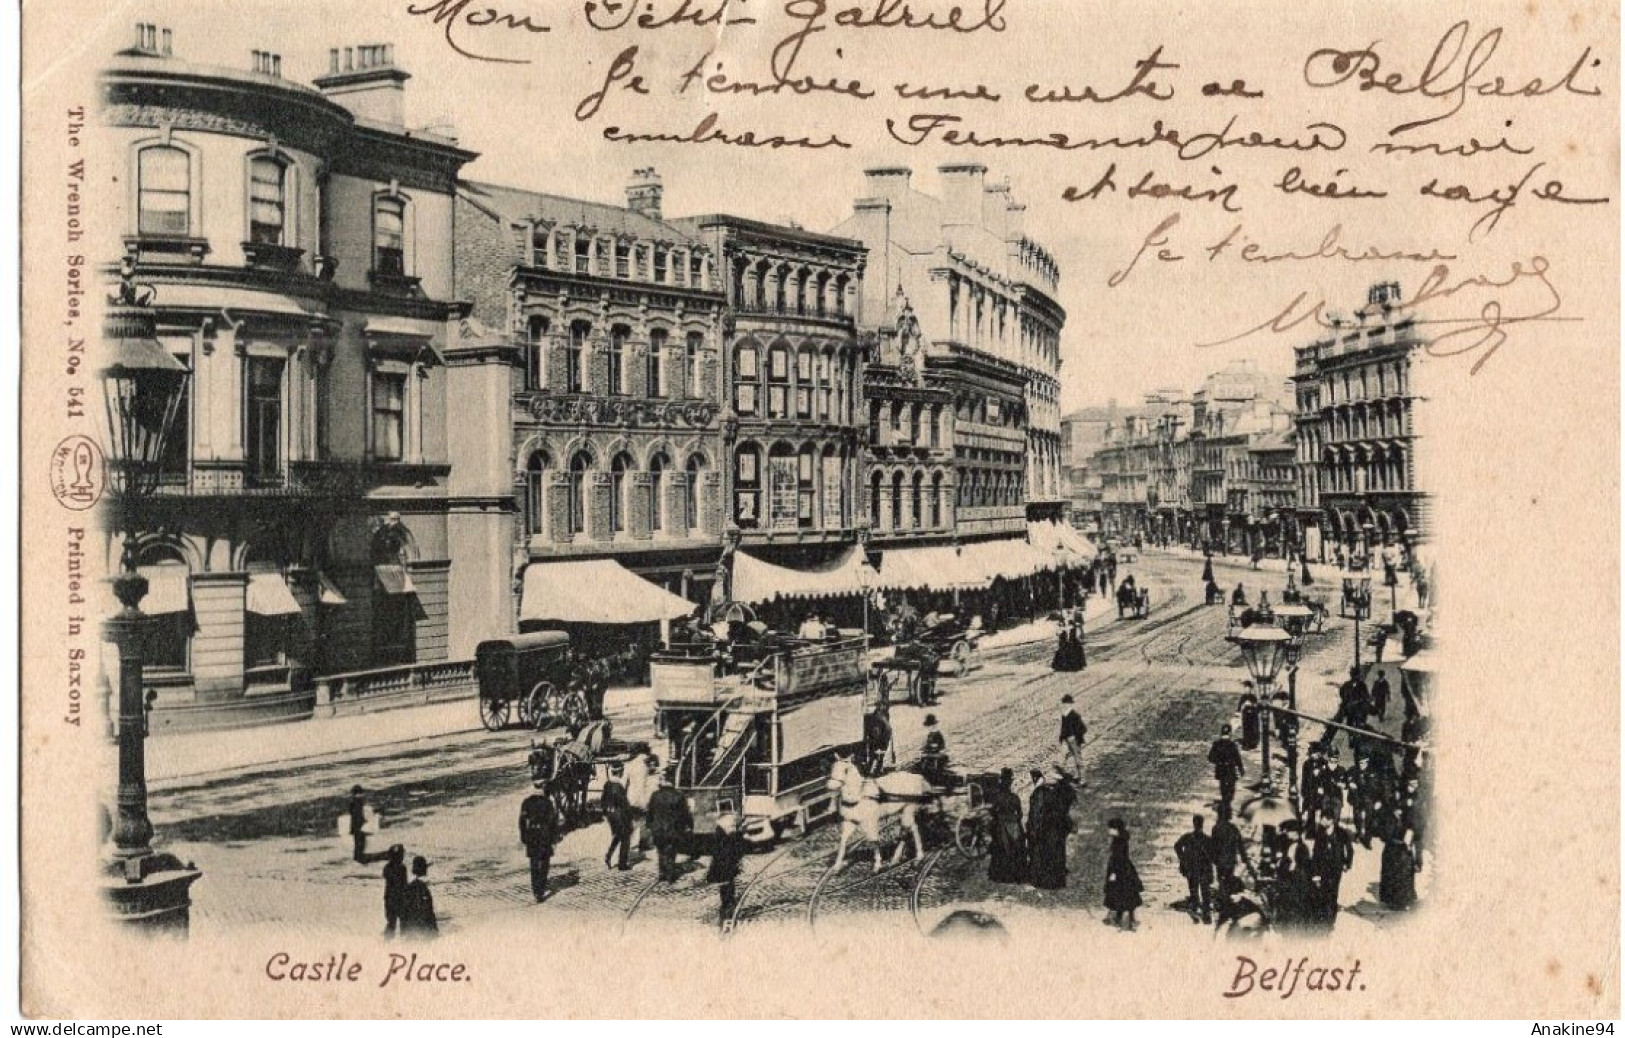 Mon Petit Gabriel
Je t'envoie une carte de Belfast
embrasse Fernande pour moi
et soin bien sage
Je t'embrasse
The Wrench Series, No. 541
Printed in Saxony
Castle Place.
Belfast.
www.delcampe.net
Anakine94